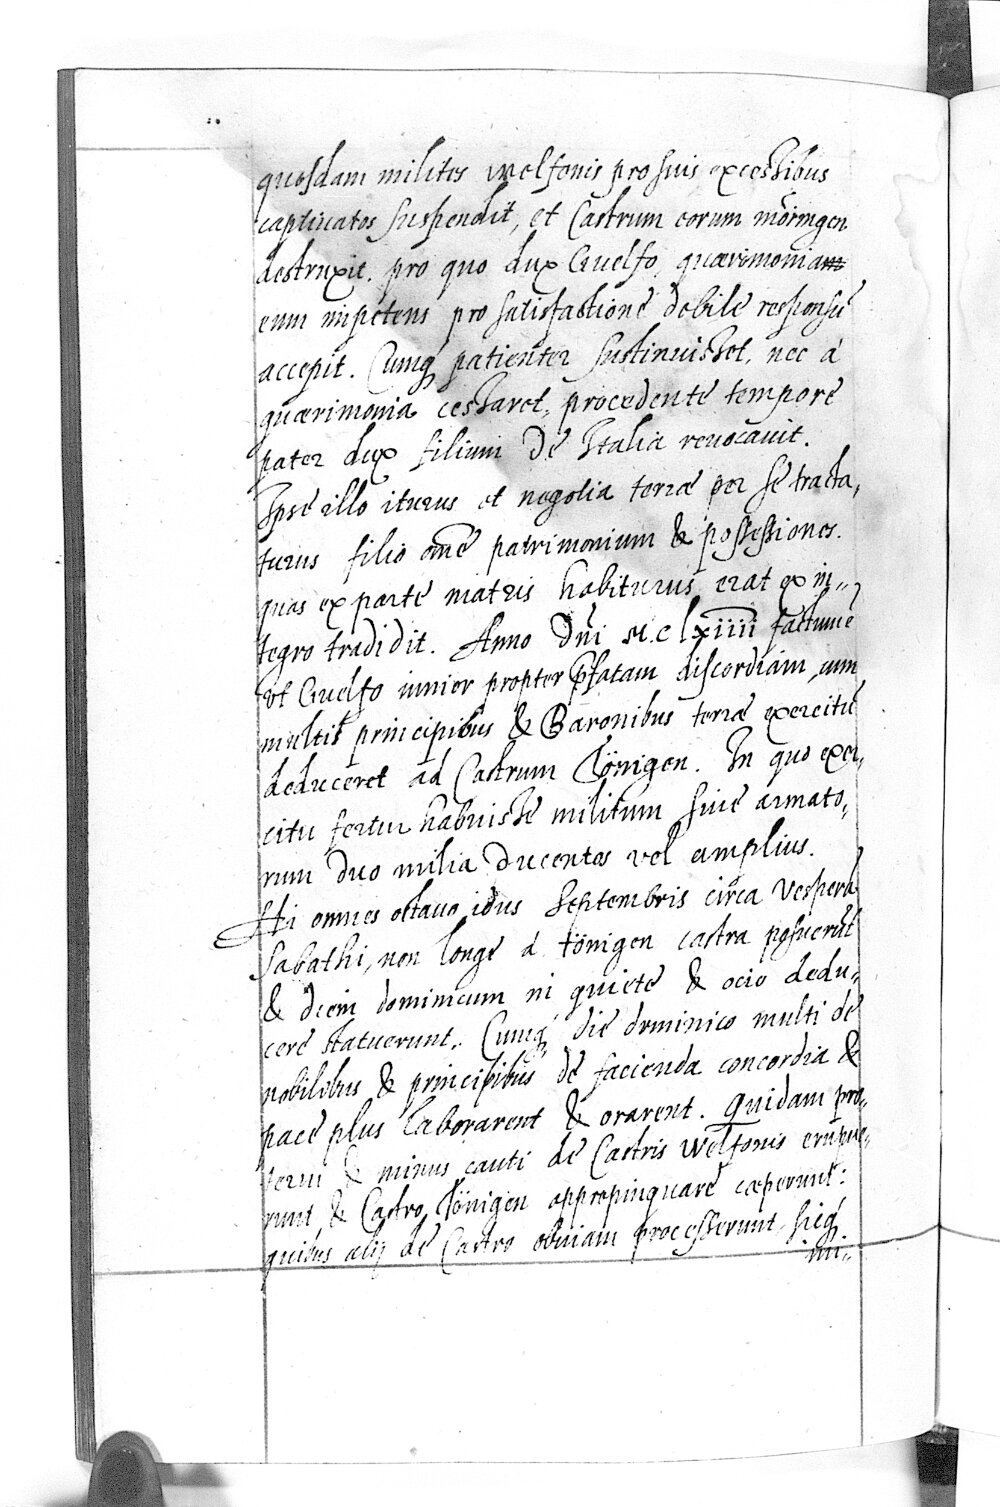 quosdam milites Welfonis pro suis excessibus
captiuatos suspendit, et Castrum eorum möringen
destruxit. pro quo dux Guelfo, quærimoniam
eum impetens pro satisfactione debile responsū
accepit. Cumq patienter sustinuisset, nec à
quærimonia cessaret, procedente tempore
pater dux filium de Italia reuocauit.
Ipse illo iturus et negotia terræ per se tracta,
turus filio om̄e patrimonium & possessiones.
quas ex parte matris habiturus erat ex in-,
tegro tradidit. Anno Dn̄i M.C lxiiii factum ē
vt Guelfo iunior propter p̄fatam discordiam, cum
multis principibus & Baronibus terræ exercitū
deduceret ad Castrum Tönigen. In quo exer,
citu fertur habuisse militum siue armato,
rum duo milia ducentos vel amplius.
Hi omnes octauo idus Septembris circa Vesperā
Sabathi, non longe à Tönigen castra posuerūt
& diem dominicum in quiete & ocio dedu-
cere statuerunt. Cumq die dominico multi de
nobilibus & principibus de facienda concordia &
pace plus laborarent & orarent. Quidam pro-
terui & minus cauti de Castris Welfonis erupue-
runt, & Castro Tönigen appropinquare cæperunt:
quibus alij de Castro obuiam processerunt, sicq
ini-